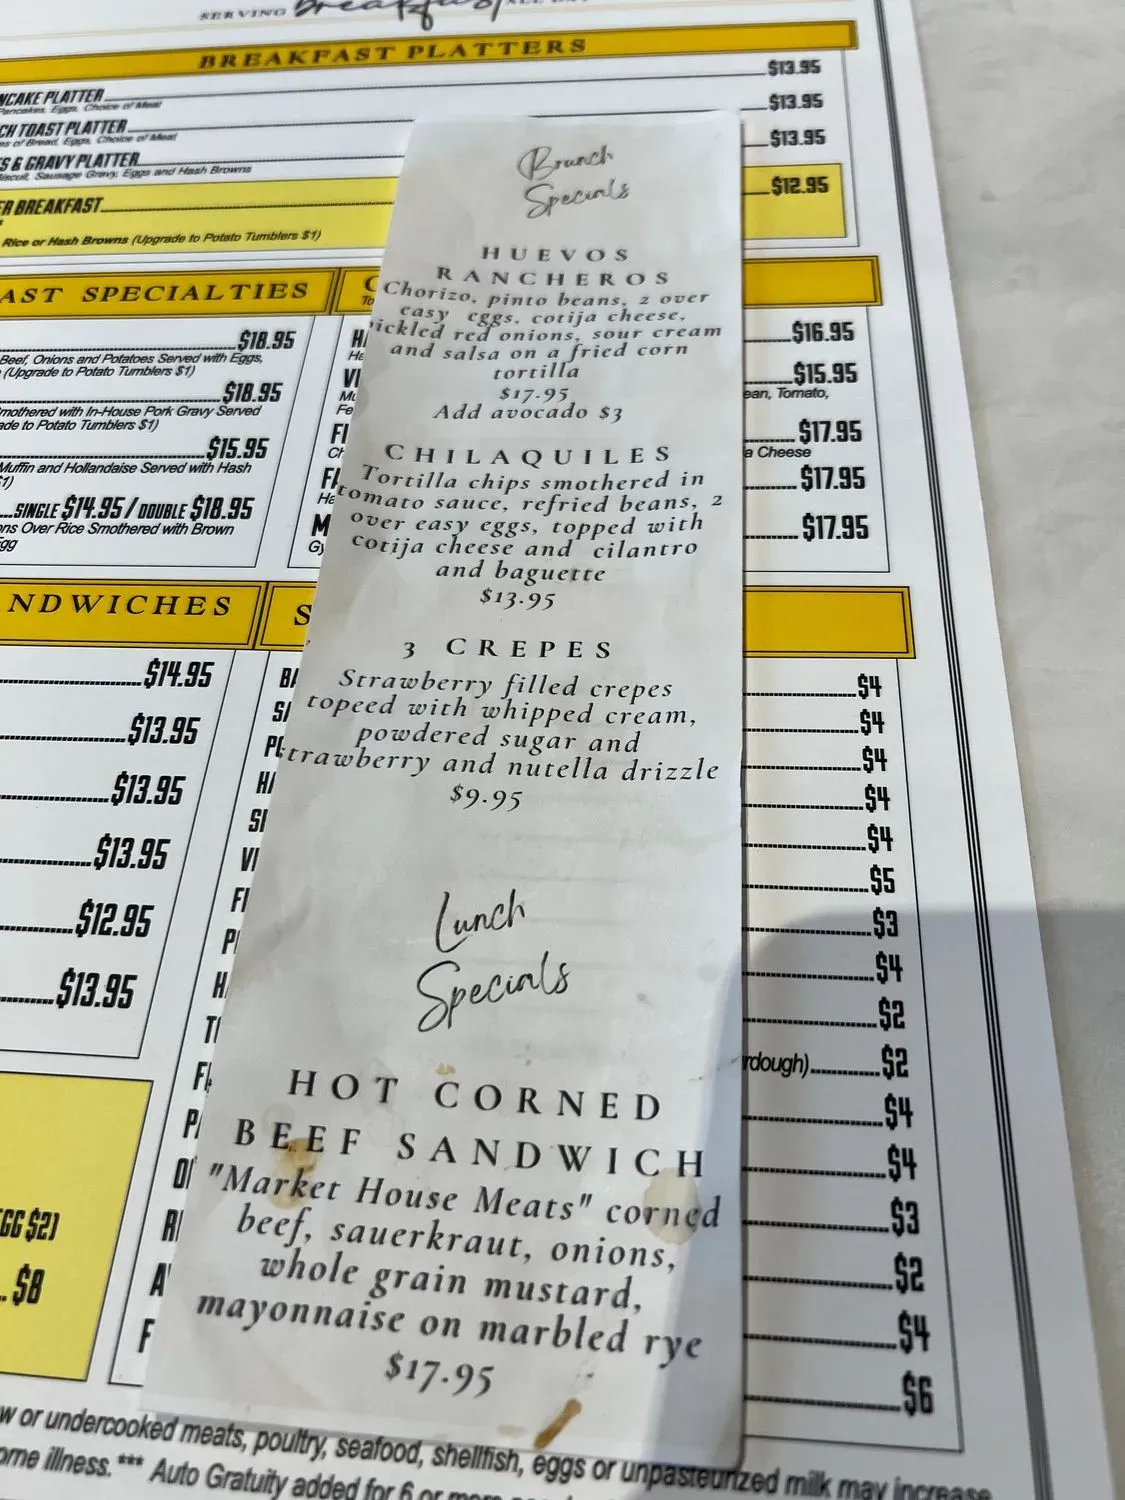 SERVING Breakfast ALL DAY
BREAKFAST PLATTERS
$13.95
NCAKE PLATTER
Pancakes, Eggs, Choice of Meat
$13.95
CH TOAST PLATTER
es of Bread, Eggs, Choice of Meat
$13.95
S & GRAVY PLATTER
Biscuit, Sausage Gravy, Eggs and Hash Browns
$12.95
ER BREAKFAST
Rice or Hash Browns (Upgrade to Potato Tumblers $1)
AST SPECIALTIES
$18.95
Beef, Onions and Potatoes Served with Eggs,
(Upgrade to Potato Tumblers $1)
$18.95
mothered with In-House Pork Gravy Served
ade to Potato Tumblers $1)
$15.95
Muffin and Hollandaise Served with Hash
1)
SINGLE $14.95 / DOUBLE $18.95
ns Over Rice Smothered with Brown
gg
NDWICHES
$14.95
$13.95
$13.95
$13.95
$12.95
$13.95
GG $2)
$8
Brunch
Specials
HUEVOS
RANCHEROS
Chorizo, pinto beans, 2 over
easy eggs, cotija cheese,
ickled red onions, sour cream
and salsa on a fried corn
tortilla
$17.95
Add avocado $3
CHILAQUILES
Tortilla chips smothered in
tomato sauce, refried beans, 2
over easy eggs, topped with
cotija cheese and cilantro
and baguette
$13.95
3 CREPES
Strawberry filled crepes
topeed with whipped cream,
powdered sugar and
trawberry and nutella drizzle
$9.95
Lunch
Specials
HOT CORNED
BEEF SANDWICH
"Market House Meats" corned
beef, sauerkraut, onions,
whole grain mustard,
mayonnaise on marbled rye
$17.95
$16.95
$15.95
ean, Tomato,
$17.95
a Cheese
$17.95
$17.95
$4
$4
$4
$4
$4
$5
$3
$4
$2
rdough) $2
$4
$4
$3
$2
$4
$6
w or undercooked meats, poultry, seafood, shellfish, eggs or unpasteurized milk may increase
orne illness. *** Auto Gratuity added for 6 or more